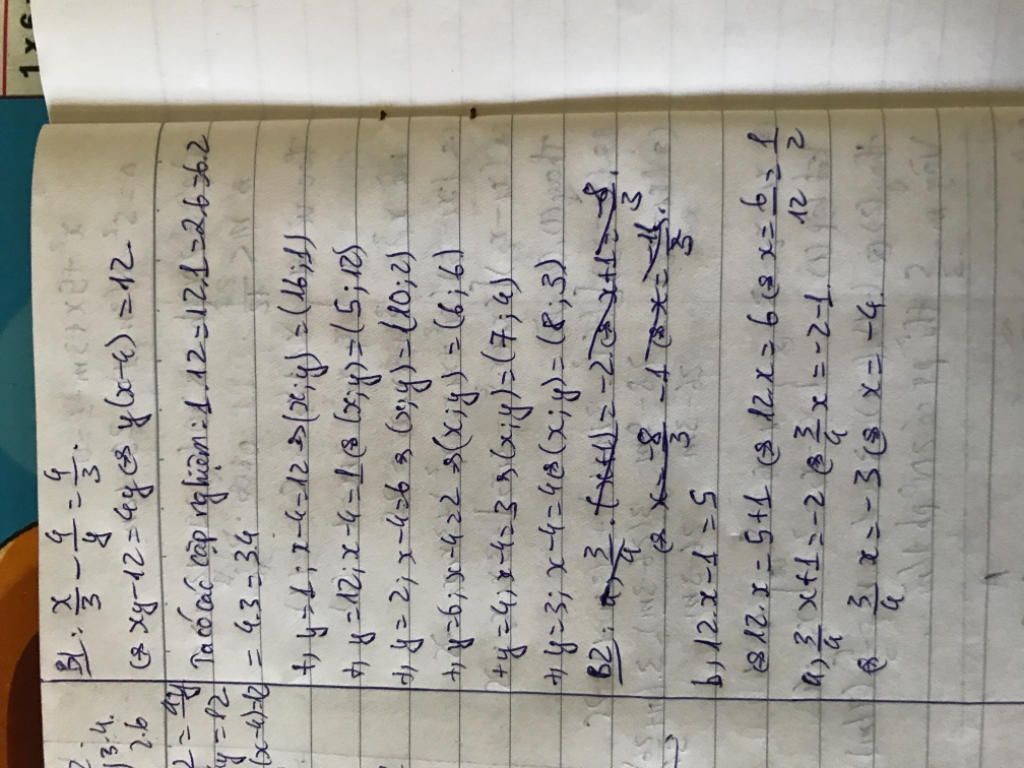 B1: x/3 - 4/y = 4/3.
⇔ xy-12=4y ⇔ y(x-4)=12
Ta có các cặp nghiệm=1.12=12.1=2.6=6.2
=4.3=3.4
+, y=1; x-4=12 ⇒ (x;y)=(16;1)
+, y=12; x-4=1 ⇔ (x;y)=(5;12)
+, y=2; x-4=6 ⇒ (x;y)=(10;2)
+, y=6; x-4=2 ⇒ (x;y)=(6;6)
+ y=4; x-4=3 ⇒ (x;y)=(7;4)
+, y=3; x-4=4 ⇔ (x;y)=(8;3)
B2: a, 3/4.(x+1)=-2 ⇔ x+1=-8/3.
⇔ x=-8/3-1 ⇔ x=
b, 12x-1=5
⇔ 12x=5+1 ⇔ 12x=6 ⇔ x=6/12=1/2
a, 3/4 x+1=-2 ⇔ 3/4 x=-2-1
⇔ 3/4 x=-3 ⇔ x=-4.
3.4.
2.6
=4y
y=12
(x-4)=12